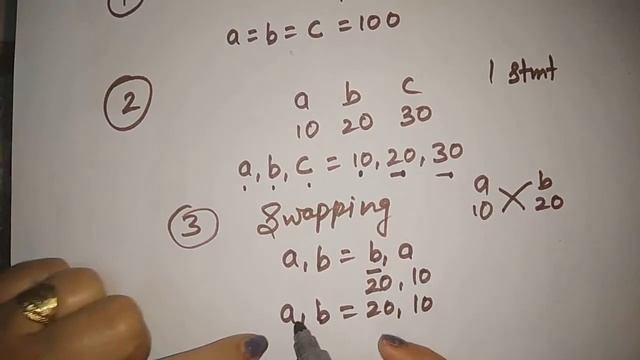 a = b = c = 100
1 stmt
2
a b c
10 20 30
a, b, c = 10, 20, 30
a b
10 20
3 Swapping
a, b = b, a
20, 10
a, b = 20, 10